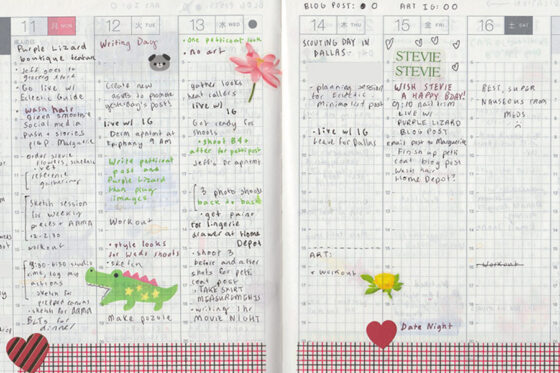 BLOG POST:
ART IG: 00
11 月 MON
Purple Lizard
boutique feature
Jeff goes to
grocery store
Go live w/
Eclectic Guide
wash hair
Green smoothie
Social media
Push + stories
P&P. Marguerite
order
+ vet
reference
gathering
Sketch session
for weekly
pieces + AAMA
12-2:30
workout
9:30-6:30 studio
time, log my
actions
sketch for
sketch for AAMA
BLTs for
dinner!
12 火 TUE
Writing Day
Create new
posts to promote
yesterday's posts
live w/ IG
Derm apntmt @
Epiphany 9 AM
Write petticoat
post and
Purple Lizard
then plug
images
Workout
• style looks
for Weds shoots
• sketch
Make pozole
13 水 WED
• one petticoat look
no art
gather looks
and collars
live w/ IG
Get ready for
shoots
• shoot B4 +
after for petti post
Jeff: Dr apntmt
3 photo shoots
back to back
• get paint
for lingerie
drawer at Home
Depot
• shoot 3
before and after
shots for petti
coat post
TAKE SKIRT
MEASUREMENTS
• writing 1hr
MOVIE NIGHT
14 木 THU
SCOUTING DAY IN
DALLAS
- planning session
for Eclectic
Minimalist post
-live w/ IG
Leave for Dallas
ART:
+ workout
15 金 FRI
STEVIE
STEVIE
WISH STEVIE
A HAPPY BDAY!
9:30 nail trim
LIVE w/
PURPLE LIZARD
BLOG POST
email post to Marguerite
Finish up petti
coat blog post
Wash hair
Home Depot?
Date Night
16 土 SAT
BEST, SUPER
NAUSEOUS FROM
MEDS
Workout